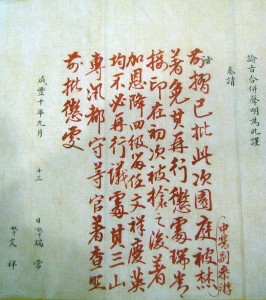 諭旨合併聲明為此謹
奏請
前摺已批此次園庭被焚
著免其再行懲處瑞常
接印在初次被搶之後著
加恩降四級留任文祥慶英
均不必再行議處其三山
專汛都守等官著查照
前批懲處
咸豐十年九月 十三 日 瑞常
文祥